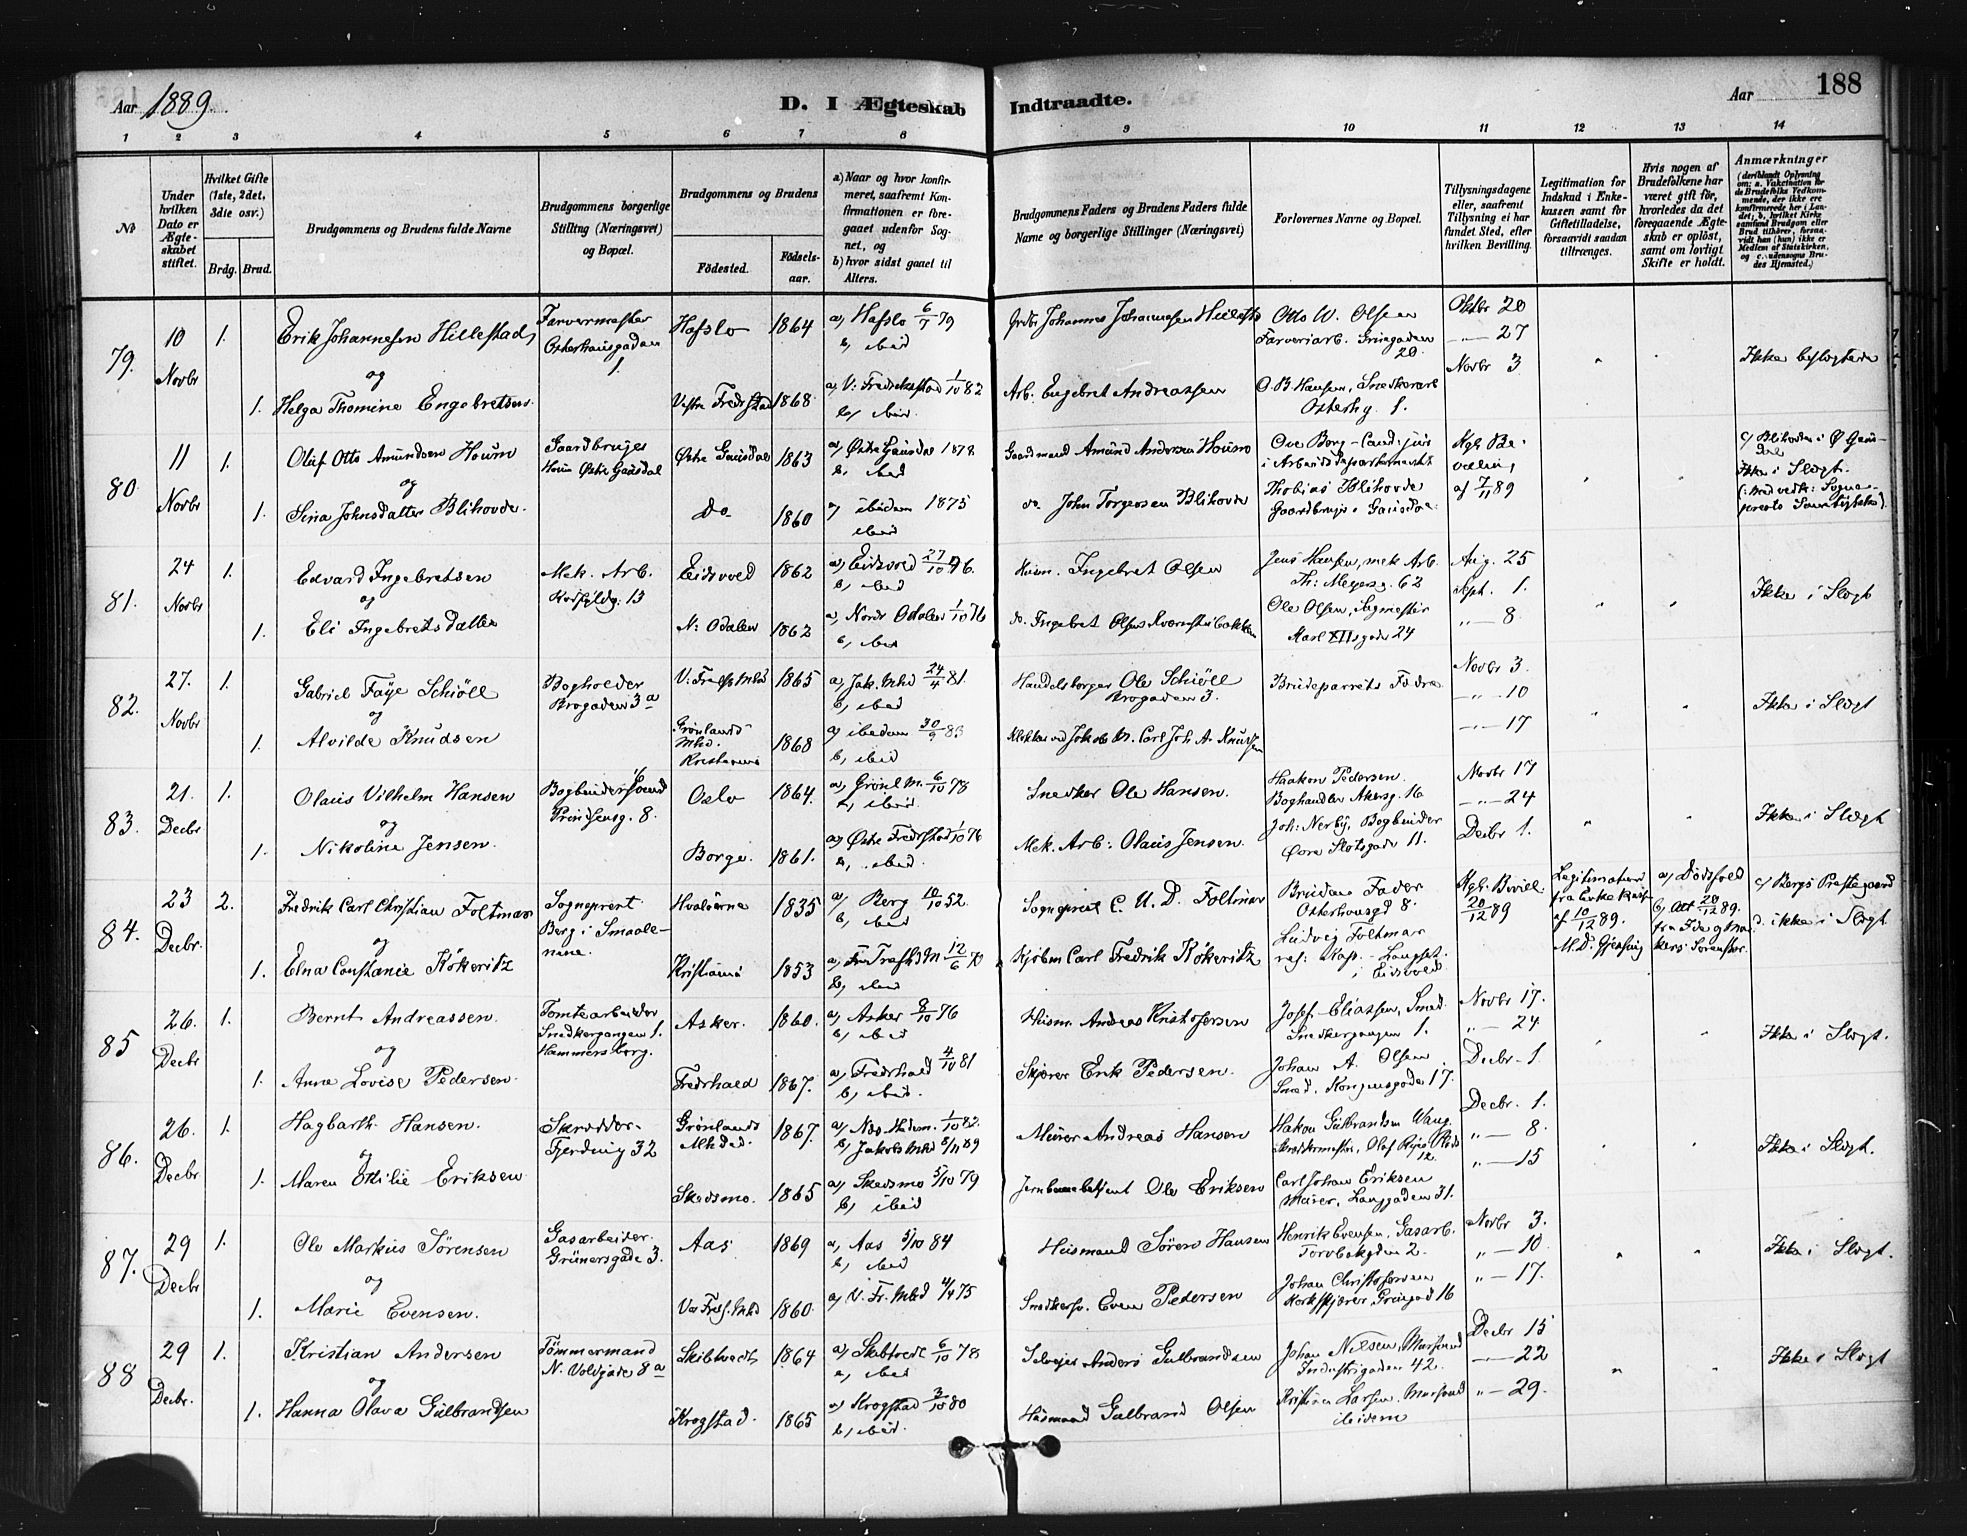 Aar 1889.
D. I Ægteskab Indtraadte.
Aar
188
1 2 3 4 5 6 7 8 9 10 11 12 13 14
No
Under hvilken Dato er Ægteskabet stiftet.
Hvilket Gifte (1ste, 2det, 3die osv.)
Brdg. Brud.
Brudgommens og Brudens fulde Navne
Brudgommens borgerlige Stilling (Næringsvei) og Bopæl.
Brudgommens og Brudens
Födested.
Födselsaar.
a) Naar og hvor konfirmeret, saafremt Konfirmationen er foregaaet udenfor Sognet, og
b) hvor sidst gaaet til Alters.
Brudgommens Faders og Brudens Faders fulde Navne og borgerlige Stillinger (Næringsvei)
Forlovernes Navne og Bopæl.
Tillysningsdagene eller, saafremt Tillysning ei har fundet Sted, efter hvilken Bevilling.
Legitimation for Indskud i Enkekassen samt for Giftetilladelse, forsaavidt saadan tiltrænges.
Hvis nogen af Brudefolkene har været gift för, hvorledes da det foregaaende Ægteskab er oplöst, samt om lovligt Skifte er holdt.
Anmærkninger
79. 10 Novbr 1. Erik Johannesen Hillestad Farvermester Osterhausgaden 1 Hafslo 1864 a) Hafslo 6/7 79 b) ibid Johannes Johannesen Otto W. Olsen Farveriarb. 20 Oktbr 20
" 27
Novbr 3 Ikke beslægtede
og
1. Helga Thomine Engebretsen Vestre Fredrstad 1868 a) V. Fredrikstad 1/10 82 b) ibid. Arb. Engebret Andreassen O. B. Hansen, Snedkerarb Osterhg. 1.
80 11 Novbr 1. Oluf Otto Amundsen Houm Gaardbruger Houm Østre Gausdal Østre Gausdal 1863 a) Østre Gausdal 1878 b) ibid Gaardmand Amund Andersen Houm Ove Borg - Cand. juris i Arbeidsdepartementet Kgl. Bevilling af 7/11 89 Ikke i Slægt.
og
1. Sina Johnsdatter Blihovde Do 1860 a) ibidem 1875 ibid do. John Torgersen Blihovde Thobias Blihovde Gaardbruger i Gausdal
81. 24 Novbr 1. Edvard Ingebretsen Mek. Arb. 13 Eidsvold 1862 a) Eidsvold 27/10 76. b) ibid Husm. Ingebret Olsen Jens Hansen, mek Arb. Th. Meyersg. 62 Aug. 25
Sept. 1.
" 8 Ikke i Slægt
og
1. Eli Ingebretsdatter N. Odalen 1862 a) Nordr Odalen 1/10 76 b) ibid do. Ingebret Olsen Ole Olsen, Sagmester Karl XIIsgade 24
82. 27. Novbr 1. Gabriel Faye Schiöll Bogholder Brogaden 3 a 1865 a) Jak. Mhd 24/4 81. b) ibid Handelsborger Ole Schiöll Brogaden 3. Brudeparrets Fædre Novbr 3.
" 10
" 17 Ikke i Slægt
og
1. Alvilde Knudsen Grønlands Mhd. Kristiania 1868 a) ibidem 30/9 83 b) ibid Carl Joh. A. Knudsen
83. 21. Decbr 1. Olaus Vilhelm Hansen Bogbindersvend Prindsensg. 8. Oslo 1864. a) Grønl M. 6/10 78 b) ibid Snedker Ole Hansen. Haakon Pedersen Boghandler Akersg. 16 Novbr 17
" 24
Decbr 1. Ikke i Slægt
og
1. Nikoline Jensen. Borge. 1861. a) Østre Fredrstad 1/10 76 b) ibid. Mek. Arb. Olaus Jensen. Joh. Nerby, Bogbinder Øvre Slotsgade 11.
84. 23 Decbr. 2. Fredrik Carl Christian Foltmar Sogneprest Berg i Smaalenene. Hvaløerne 1835 a) Berg 10/10 52. b) ibid Sogneprest C. U. D. Foltmar Brudens Fader Osterhausgd 8. Kgl. Bevill. 20/12 89 Legitimation fra Enkekassen af 10/12 89. M. D. a) Dödsfald b) Att 20/12 89. fra Sorenskr. c) Bergs Prestegaard
d. ikke i Slægt
og
1. Elna Constance Rökeritz Kristiania 1853 a) 12/6 70 b) ibid Kjöbm Carl Fredrik Rökeritz Ludvig Foltmar Eidsvold
85 26. Decbr 1. Bernt Andreassen. Tomtearbeider Snedkergangen 1. Hammersborg. Asker. 1860. a) Asker 8/10 76 b) ibid Husm. Andreas Kristofersen Josef Eliassen, Smed. Snedkergangen 1. Novbr 17.
" 24
Decbr 1. Ikke i Slægt.
og
1. Anne Lovise Pedersen. Fredrhald 1867. a) Fredrhald 4/10 81 b) ibid. Skjærer Erik Pedersen. Johan A. Olsen Smed. Kongensgade 17.
86. 26. Decbr 1. Hagbarth Hansen. Skrædder Fjerding 32 Grønlands Mhd. 1867. a) 1/10 82. b) Jakobs Mhd 8/11 89 Murer Andreas Hansen Hakon Gulbrandsen Wang Skræddermester, Olaf Ryes Plads 12. Decbr. 1.
" 8.
" 15 Ikke i Slægt.
og
1. Maren Otilie Eriksen Skedsmo. 1865 a) Skedsmo 5/10 79 b) ibid Jernbanebetjent Ole Eriksen Carl Johan Eriksen Murer, Langgaden 31.
87. 29 Decbr 1. Ole Markus Sörensen Gasarbeider. Grünersgade 3. Aas 1869 a) Aas 5/10 84 b) ibid Husmand Sören Hansen Henrik Evensen, Gasarb. Torvbakgden 2. Novbr 3.
" 10.
" 17. Ikke i Slægt.
og
1. Marie Evensen. 1860. a) V. Fr. Mhd 4/4 75 Snedkersv. Even Pedersen Johan Christofersen 16
88 29 Decbr. 1. Kristian Andersen Tömmermand N. Voldgade 8 a Skibtvedt 1864 a) Skibtvedt 6/10 78 b) ibid Selveier Anders Gulbrandsen Johan Nilsen, Murmand Industrigaden 42. Decbr 15
" 22
" 29. Ikke i Slægt
og
1. Hanna Olava Gulbrandsen Krogstad. 1865 a) Krogstad 3/10 80 b) ibid. Husmand Gulbrand Olsen Kristian Larsen, Murmand ibidem